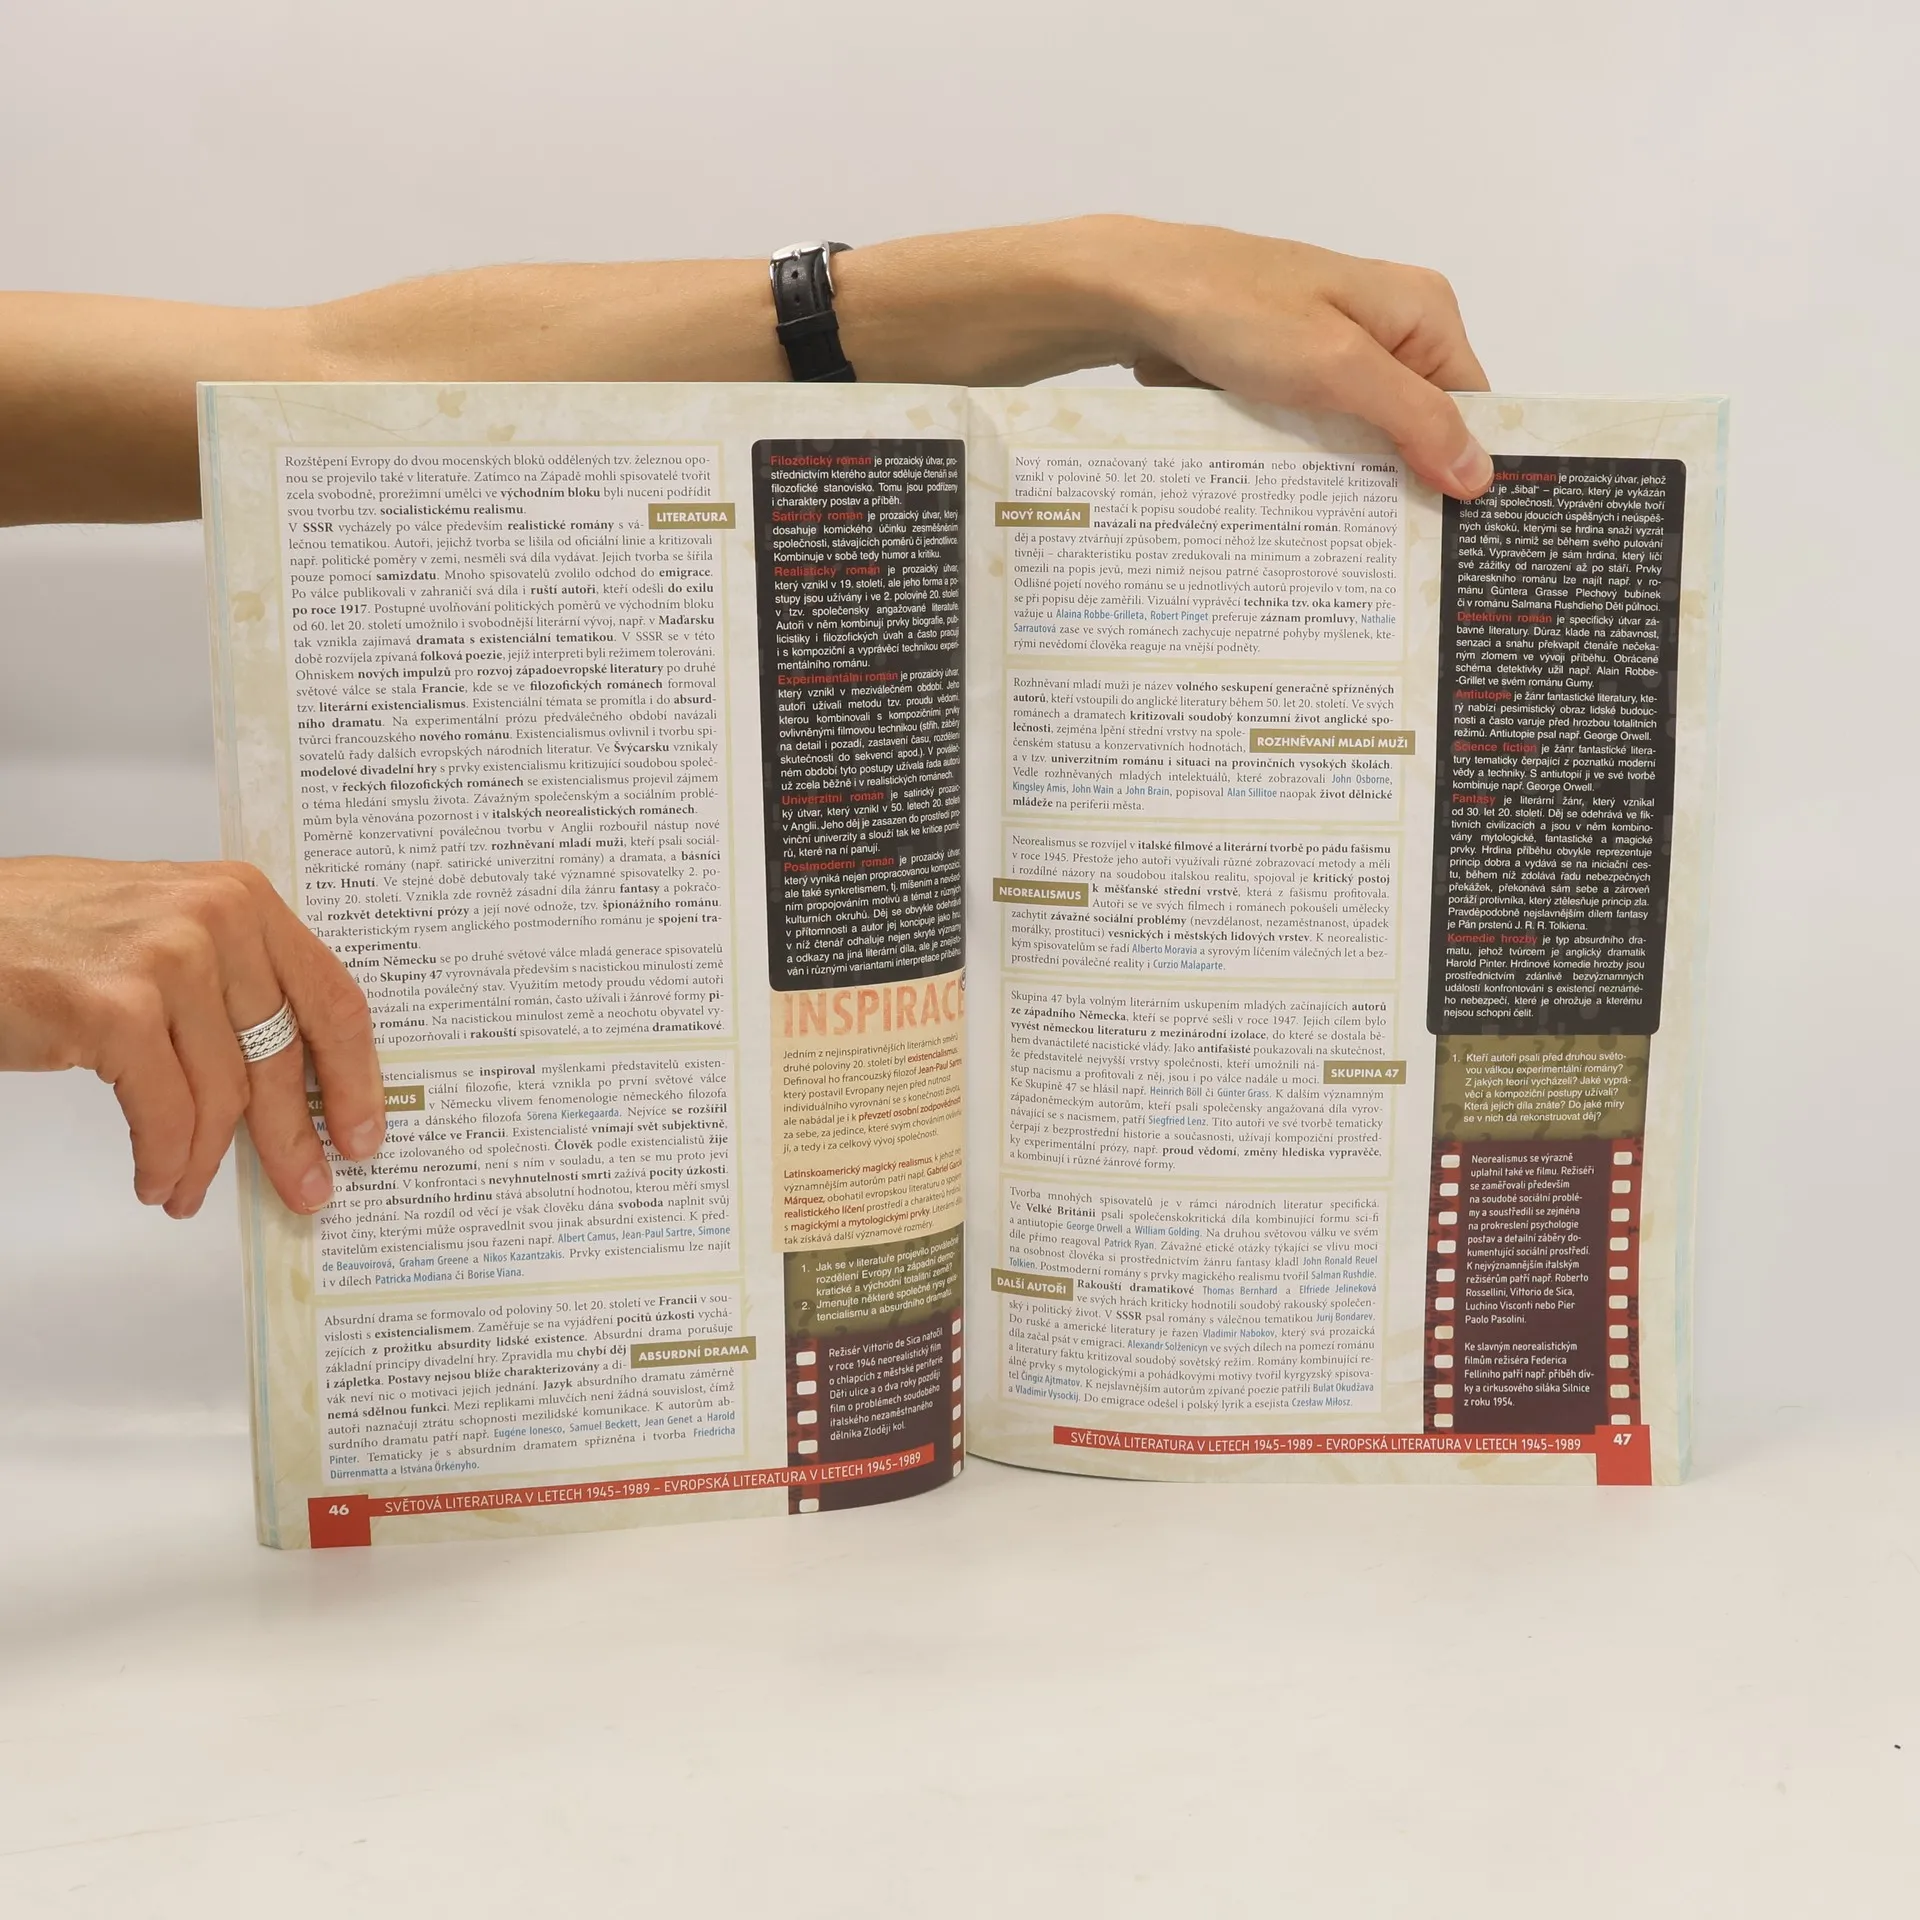 Rozštěpení Evropy do dvou mocenských bloků oddělených tzv. železnou opo-
nou se projevilo také v literatuře. Zatímco na Západě mohli spisovatelé tvořit
zcela svobodně, prorežimní umělci ve východním bloku byli nuceni podřídit
svou tvorbu tzv. socialistickému realismu.
LITERATURA
V SSSR vycházely po válce především realistické romány s vá-
lečnou tematikou. Autoři, jejichž tvorba se lišila od oficiální linie a kritizovali
např. politické poměry v zemi, nesměli svá díla vydávat. Jejich tvorba se šířila
pouze pomocí samizdatu. Mnoho spisovatelů zvolilo odchod do emigrace.
Po válce publikovali v zahraničí svá díla i ruští autoři, kteří odešli do exilu
po roce 1917. Postupné uvolňování politických poměrů ve východním bloku
od 60. let 20. století umožnilo i svobodnější literární vývoj, např. v Maďarsku
tak vznikla zajímavá dramata s existenciální tematikou. V SSSR se v této
době rozvíjela zpívaná folková poezie, jejíž interpreti byli režimem tolerováni.
Ohniskem nových impulzů pro rozvoj západoevropské literatury po druhé
světové válce se stala Francie, kde se ve filozofických románech formoval
tzv. literární existencialismus. Existenciální témata se promítla i do absurd-
ního dramatu. Na experimentální prózu předválečného období navázali
tvůrci francouzského nového románu. Existencialismus ovlivnil i tvorbu spi-
sovatelů řady dalších evropských národních literatur. Ve Švýcarsku vznikaly
modelové divadelní hry s prvky existencialismu kritizující soudobou společ-
nost, v řeckých filozofických románech se existencialismus projevil zájmem
o téma hledání smyslu života. Závažným společenským a sociálním problé-
mům byla věnována pozornost i v italských neorealistických románech.
Poměrně konzervativní poválečnou tvorbu v Anglii rozbouřil nástup nové
generace autorů, k nimž patří tzv. rozhněvaní mladí muži, kteří psali sociál-
někritické romány (např. satirické univerzitní romány) a dramata, a básníci
z tzv. Hnutí. Ve stejné době debutovaly také významné spisovatelky 2. po-
loviny 20. století. Vznikla zde rovněž zásadní díla žánru fantasy a pokračo-
val rozkvět detektivní prózy a její nové odnože, tzv. špionážního románu.
Charakteristickým rysem anglického postmoderního románu je spojení tra-
a experimentu.
adním Německu se po druhé světové válce mladá generace spisovatelů
á do Skupiny 47 vyrovnávala především s nacistickou minulostí země
hodnotila poválečný stav. Využitím metody proudu vědomí autoři
avázali na experimentální román, často užívali i žánrové formy pi-
románu. Na nacistickou minulost země a neochotu obyvatel vy-
ní upozorňovali i rakouští spisovatelé, a to zejména dramatikové.
istencialismus se inspiroval myšlenkami představitelů existen-
ciální filozofie, která vznikla po první světové válce
SMUS
v Německu vlivem fenomenologie německého filozofa
ggera a dánského filozofa Sörena Kierkegaarda. Nejvíce se rozšířil
ětové válce ve Francii. Existencialisté vnímají svět subjektivně,
nce izolovaného od společnosti. Člověk podle existencialistů žije
světě, kterému nerozumí, není s ním v souladu, a ten se mu proto jeví
o absurdní. V konfrontaci s nevyhnutelností smrti zažívá pocity úzkosti.
mrt se pro absurdního hrdinu stává absolutní hodnotou, kterou měří smysl
svého jednání. Na rozdíl od věcí je však člověku dána svoboda naplnit svůj
život činy, kterými může ospravedlnit svou jinak absurdní existenci. K před-
stavitelům existencialismu jsou řazeni např. Albert Camus, Jean-Paul Sartre, Simone
de Beauvoirová, Graham Greene a Nikos Kazantzakis. Prvky existencialismu lze najít
i v dílech Patricka Modiana či Borise Viana.
Absurdní drama se formovalo od poloviny 50. let 20. století ve Francii v sou-
vislosti s existencialismem. Zaměřuje se na vyjádření pocitů úzkosti vychá-
zejících z prožitku absurdity lidské existence. Absurdní drama porušuje
základní principy divadelní hry. Zpravidla mu chybí děj
ABSURDNÍ DRAMA
i zápletka. Postavy nejsou blíže charakterizovány a di-
vák neví nic o motivaci jejich jednání. Jazyk absurdního dramatu záměrně
nemá sdělnou funkci. Mezi replikami mluvčích není žádná souvislost, čímž
autoři naznačují ztrátu schopnosti mezilidské komunikace. K autorům ab-
surdního dramatu patří např. Eugéne Ionesco, Samuel Beckett, Jean Genet a Harold
Pinter. Tematicky je s absurdním dramatem spřízněna i tvorba Friedricha
Dürrenmatta a Istvána Örkényho.
Filozofický román je prozaický útvar, pro-
střednictvím kterého autor sděluje čtenáři své
filozofické stanovisko. Tomu jsou podřízeny
i charaktery postav a příběh.
Satirický román je prozaický útvar, který
dosahuje komického účinku zesměšněním
společnosti, stávajících poměrů či jednotlivce.
Kombinuje v sobě tedy humor a kritiku.
Realistický román je prozaický útvar,
který vznikl v 19. století, ale jeho forma a po-
stupy jsou užívány i ve 2. polovině 20. století
v tzv. společensky angažované literatuře.
Autoři v něm kombinují prvky biografie, pub-
licistiky i filozofických úvah a často pracují
i s kompoziční a vyprávěcí technikou experi-
mentálního románu.
Experimentální román je prozaický útvar,
který vznikl v meziválečném období. Jeho
autoři užívali metodu tzv. proudu vědomí,
kterou kombinovali s kompozičními prvky
ovlivněnými filmovou technikou (střih, záběry
na detail i pozadí, zastavení času, rozdělení
skutečnosti do sekvencí apod.). V pováleč-
ném období tyto postupy užívala řada autorů
už zcela běžně i v realistických románech.
Univerzitní román je satirický prozaic-
ký útvar, který vznikl v 50. letech 20. století
v Anglii. Jeho děj je zasazen do prostředí pro-
vinční univerzity a slouží tak ke kritice pomě-
rů, které na ní panují.
Postmoderní román je prozaický útvar,
který vyniká nejen propracovanou kompozicí,
ale také synkretismem, tj. míšením a nevšed-
ním propojováním motivů a témat z různých
kulturních okruhů. Děj se obvykle odehrává
v přítomnosti a autor jej koncipuje jako hru,
v níž čtenář odhaluje nejen skryté významy
a odkazy na jiná literární díla, ale je znejisťo-
ván i různými variantami interpretace příběhu.
INSPIRACE
Jedním z nejinspirativnějších literárních směrů
druhé poloviny 20. století byl existencialismus.
Definoval ho francouzský filozof Jean-Paul Sartre,
který postavil Evropany nejen před nutnost
individuálního vyrovnání se s konečností života,
ale nabádal je i k převzetí osobní zodpovědnosti
za sebe, za jedince, které svým chováním ovlivňu-
jí, a tedy i za celkový vývoj společnosti.
Latinskoamerický magický realismus, k jehož nej-
významnějším autorům patří např. Gabriel García
Márquez, obohatil evropskou literaturu o spojení
realistického líčení prostředí a charakterů hrdinů
s magickými a mytologickými prvky. Literární dílo
tak získává další významové rozměry.
1. Jak se v literatuře projevilo poválečné
rozdělení Evropy na západní demo-
kratické a východní totalitní země?
2. Jmenujte některé společné rysy exis-
tencialismu a absurdního dramatu.
Režisér Vittorio de Sica natočil
v roce 1946 neorealistický film
o chlapcích z městské periferie
Děti ulice a o dva roky později
film o problémech soudobého
italského nezaměstnaného
dělníka Zloději kol.
46
SVĚTOVÁ LITERATURA V LETECH 1945–1989 – EVROPSKÁ LITERATURA V LETECH 1945–1989
Nový román, označovaný také jako antiromán nebo objektivní román,
vznikl v polovině 50. let 20. století ve Francii. Jeho představitelé kritizovali
tradiční balzacovský román, jehož výrazové prostředky podle jejich názoru
NOVÝ ROMÁN
nestačí k popisu soudobé reality. Technikou vyprávění autoři
navázali na předválečný experimentální román. Románový
děj a postavy ztvárňují způsobem, pomocí něhož lze skutečnost popsat objek-
tivněji – charakteristiku postav zredukovali na minimum a zobrazení reality
omezili na popis jevů, mezi nimiž nejsou patrné časoprostorové souvislosti.
Odlišné pojetí nového románu se u jednotlivých autorů projevilo v tom, na co
se při popisu děje zaměřili. Vizuální vyprávěcí technika tzv. oka kamery pře-
važuje u Alaina Robbe-Grilleta, Robert Pinget preferuje záznam promluvy, Nathalie
Sarrautová zase ve svých románech zachycuje nepatrné pohyby myšlenek, kte-
rými nevědomí člověka reaguje na vnější podněty.
Rozhněvaní mladí muži je název volného seskupení generačně spřízněných
autorů, kteří vstoupili do anglické literatury během 50. let 20. století. Ve svých
románech a dramatech kritizovali soudobý konzumní život anglické spo-
lečnosti, zejména lpění střední vrstvy na spole-
ROZHNĚVANÍ MLADÍ MUŽI
čenském statusu a konzervativních hodnotách,
a v tzv. univerzitním románu i situaci na provinčních vysokých školách.
Vedle rozhněvaných mladých intelektuálů, které zobrazovali John Osborne,
Kingsley Amis, John Wain a John Brain, popisoval Alan Sillitoe naopak život dělnické
mládeže na periferii města.
Neorealismus se rozvíjel v italské filmové a literární tvorbě po pádu fašismu
v roce 1945. Přestože jeho autoři využívali různé zobrazovací metody a měli
i rozdílné názory na soudobou italskou realitu, spojoval je kritický postoj
NEOREALISMUS
k měšťanské střední vrstvě, která z fašismu profitovala.
Autoři se ve svých filmech i románech pokoušeli umělecky
zachytit závažné sociální problémy (nevzdělanost, nezaměstnanost, úpadek
morálky, prostituci) vesnických i městských lidových vrstev. K neorealistic-
kým spisovatelům se řadí Alberto Moravia a syrovým líčením válečných let a bez-
prostřední poválečné reality i Curzio Malaparte.
Skupina 47 byla volným literárním uskupením mladých začínajících autorů
ze západního Německa, kteří se poprvé sešli v roce 1947. Jejich cílem bylo
vyvést německou literaturu z mezinárodní izolace, do které se dostala bě-
hem dvanáctileté nacistické vlády. Jako antifašisté poukazovali na skutečnost,
že představitelé nejvyšší vrstvy společnosti, kteří umožnili ná-
SKUPINA 47
stup nacismu a profitovali z něj, jsou i po válce nadále u moci.
Ke Skupině 47 se hlásil např. Heinrich Böll či Günter Grass. K dalším významným
západoněmeckým autorům, kteří psali společensky angažovaná díla vyrov-
návající se s nacismem, patří Siegfried Lenz. Tito autoři ve své tvorbě tematicky
čerpají z bezprostřední historie a současnosti, užívají kompoziční prostřed-
ky experimentální prózy, např. proud vědomí, změny hlediska vypravěče,
a kombinují i různé žánrové formy.
Tvorba mnohých spisovatelů je v rámci národních literatur specifická.
Ve Velké Británii psali společenskokritická díla kombinující formu sci-fi
a antiutopie George Orwell a William Golding. Na druhou světovou válku ve svém
díle přímo reagoval Patrick Ryan. Závažné etické otázky týkající se vlivu moci
na osobnost člověka si prostřednictvím žánru fantasy kladl John Ronald Reuel
Tolkien. Postmoderní romány s prvky magického realismu tvořil Salman Rushdie.
DALŠÍ AUTOŘI
Rakouští dramatikové Thomas Bernhard a Elfriede Jelineková
ve svých hrách kriticky hodnotili soudobý rakouský společen-
ský i politický život. V SSSR psal romány s válečnou tematikou Jurij Bondarev.
Do ruské a americké literatury je řazen Vladimir Nabokov, který svá prozaická
díla začal psát v emigraci. Alexandr Solženicyn ve svých dílech na pomezí románu
a literatury faktu kritizoval soudobý sovětský režim. Romány kombinující re-
álné prvky s mytologickými a pohádkovými motivy tvořil kyrgyzský spisova-
tel Čingiz Ajtmatov. K nejslavnějším autorům zpívané poezie patřili Bulat Okudžava
a Vladimir Vysockij. Do emigrace odešel i polský lyrik a esejista Czesław Miłosz.
eskní román je prozaický útvar, jehož
u je „šibal“ – picaro, který je vykázán
na okraj společnosti. Vyprávění obvykle tvoří
sled za sebou jdoucích úspěšných i neúspěš-
ných úskoků, kterými se hrdina snaží vyzrát
nad těmi, s nimiž se během svého putování
setká. Vypravěčem je sám hrdina, který líčí
své zážitky od narození až po stáří. Prvky
pikareskního románu lze najít např. v ro-
mánu Güntera Grasse Plechový bubínek
či v románu Salmana Rushdieho Děti půlnoci.
Detektivní román je specifický útvar zá-
bavné literatury. Důraz klade na zábavnost,
senzaci a snahu překvapit čtenáře nečeka-
ným zlomem ve vývoji příběhu. Obrácené
schéma detektivky užil např. Alain Robbe-
-Grillet ve svém románu Gumy.
Antiutopie je žánr fantastické literatury, kte-
rý nabízí pesimistický obraz lidské budouc-
nosti a často varuje před hrozbou totalitních
režimů. Antiutopie psal např. George Orwell.
Science fiction je žánr fantastické litera-
tury tematicky čerpající z poznatků moderní
vědy a techniky. S antiutopií ji ve své tvorbě
kombinuje např. George Orwell.
Fantasy je literární žánr, který vznikal
od 30. let 20. století. Děj se odehrává ve fik-
tivních civilizacích a jsou v něm kombino-
vány mytologické, fantastické a magické
prvky. Hrdina příběhu obvykle reprezentuje
princip dobra a vydává se na iniciační ces-
tu, během níž zdolává řadu nebezpečných
překážek, překonává sám sebe a zároveň
poráží protivníka, který ztělesňuje princip zla.
Pravděpodobně nejslavnějším dílem fantasy
je Pán prstenů J. R. R. Tolkiena.
Komedie hrozby je typ absurdního dra-
matu, jehož tvůrcem je anglický dramatik
Harold Pinter. Hrdinové komedie hrozby jsou
prostřednictvím zdánlivě bezvýznamných
událostí konfrontováni s existencí neznámé-
ho nebezpečí, které je ohrožuje a kterému
nejsou schopni čelit.
1. Kteří autoři psali před druhou světo-
vou válkou experimentální romány?
Z jakých teorií vycházeli? Jaké vyprá-
věcí a kompoziční postupy užívali?
Která jejich díla znáte? Do jaké míry
se v nich dá rekonstruovat děj?
Neorealismus se výrazně
uplatnil také ve filmu. Režiséři
se zaměřovali především
na soudobé sociální problé-
my a soustředili se zejména
na prokreslení psychologie
postav a detailní záběry do-
kumentující sociální prostředí.
K nejvýznamnějším italským
režisérům patří např. Roberto
Rossellini, Vittorio de Sica,
Luchino Visconti nebo Pier
Paolo Pasolini.
Ke slavným neorealistickým
filmům režiséra Federica
Felliniho patří např. příběh dív-
ky a cirkusového siláka Silnice
z roku 1954.
SVĚTOVÁ LITERATURA V LETECH 1945–1989 – EVROPSKÁ LITERATURA V LETECH 1945–1989
47